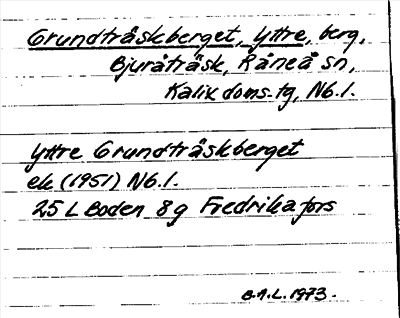 Grundträskberget, Yttre, berg,
Bjuråträsk, Råneå sn,
Kalix doms.tg, Nb.l.
Yttre Grundträskberget
ek (1951) Nb.l.
25 L Boden 8g Fredrikafors
B.A.L. 1973.